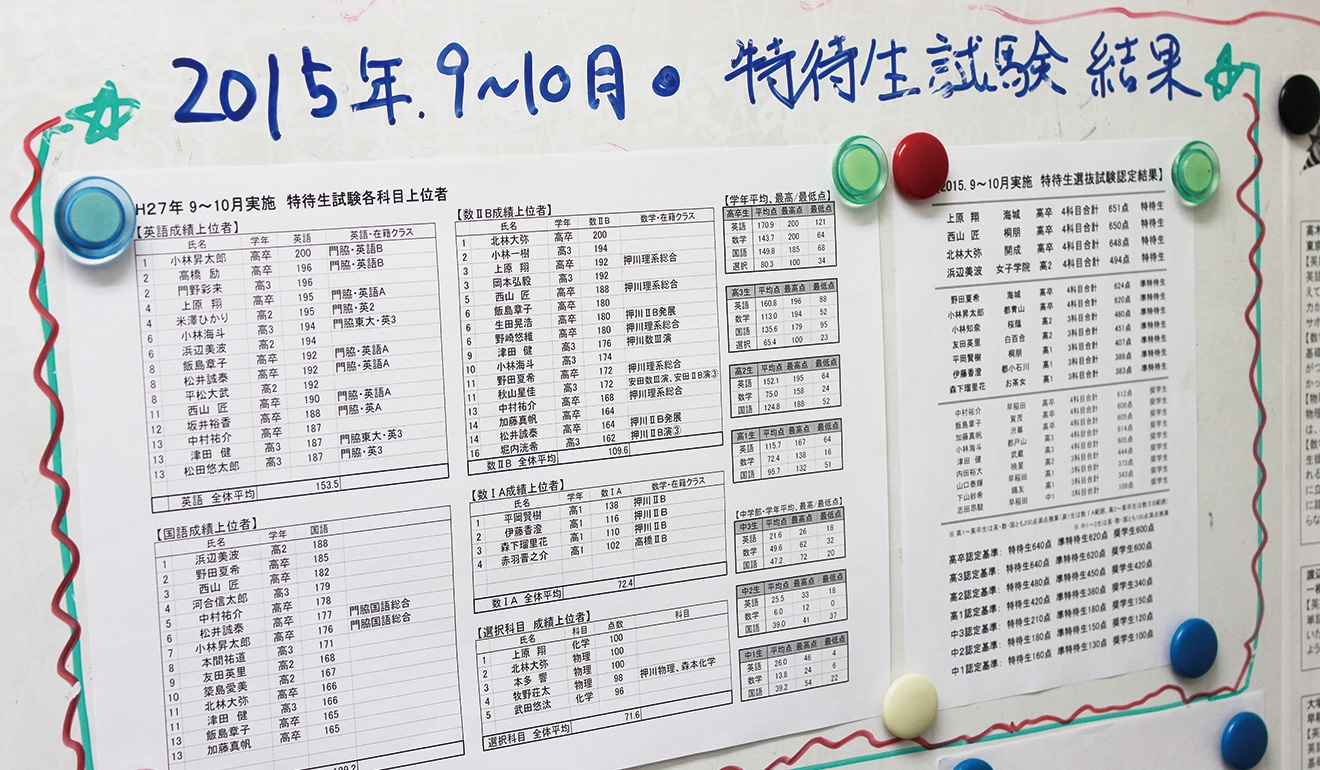 2015年.9~10月。特待生試験 結果
H27年 9~10月実施 特待生試験各科目上位者
【英語成績上位者】
氏名 学年 英語 英語・在籍クラス
1 小林昇太郎 高卒 200 門脇・英語B
2 高橋 励 高卒 196 門脇・英語B
2 門野彩来 高3 196
4 上原 翔 高卒 195 門脇・英語A
4 米澤ひかり 高2 195 門脇・英2
6 小林海斗 高3 194 門脇東大・英3
6 浜辺美波 高2 194
8 飯島章子 高卒 192 門脇・英語A
8 松井誠泰 高卒 192 門脇・英語A
8 平松大武 高2 192
11 西山 匠 高卒 190 門脇・英語A
12 坂井裕香 高卒 188 門脇・英A
13 中村祐介 高卒 187
13 津田 健 高3 187 門脇東大・英3
13 松田悠太郎 高3 187 門脇・英3
英語 全体平均 153.5
【国語成績上位者】
氏名 学年 国語
1 浜辺美波 高2 188
2 野田夏希 高卒 185
3 西山 匠 高卒 182
4 河合信太郎 高3 179
5 中村祐介 高卒 178 門脇国語総合
6 松井誠泰 高卒 177 門脇国語総合
7 小林昇太郎 高卒 176
8 本間祐道 高3 171
9 友田英里 高2 168
10 築島愛美 高2 167
11 北林大弥 高卒 166
11 津田 健 高3 166
13 飯島章子 高卒 165
13 加藤真帆 高卒 165
【数ⅡB成績上位者】
氏名 学年 数ⅡB 数学・在籍クラス
1 北林大弥 高卒 200
2 小林一樹 高3 194
3 上原 翔 高卒 192 押川理系総合
3 岡本弘毅 高3 192
5 西山 匠 高卒 188 押川理系総合
6 飯島章子 高卒 180
6 生田晃浩 高卒 180 押川ⅡB発展
6 野崎悠維 高卒 180 押川理系総合
9 津田 健 高3 176 押川数Ⅲ演
10 小林海斗 高3 174
11 野田夏希 高卒 172 押川理系総合
11 秋山星佳 高3 172 安田数Ⅲ演、安田ⅡB演③
13 中村祐介 高卒 168 押川理系総合
14 加藤真帆 高卒 164
14 松井誠泰 高卒 164 押川ⅡB発展
16 堀内洸希 高3 162 押川ⅡB演③
数ⅡB 全体平均 109.6
【数ⅠA成績上位者】
氏名 学年 数ⅠA 数学・在籍クラス
1 平岡賢樹 高1 138 押川ⅡB
2 伊藤香澄 高1 116 押川ⅡB
3 森下瑠里花 高1 110 押川ⅡB
4 赤羽晋之介 高1 102 高橋ⅡB
数ⅠA 全体平均 72.4
【選択科目 成績上位者】
氏名 科目 点数 科目
1 上原 翔 化学 100
2 北林大弥 物理 100
3 本多 響 物理 100
4 牧野荘太 物理 98 押川物理、森本化学
5 武田悠汰 化学 96
選択科目 全体平均 71.6
【学年平均、最高/最低点】
高卒生 平均点 最高点 最低点
英語 170.9 200 121
数学 143.7 200 64
国語 149.8 185 68
選択 80.3 100 34
高3生 平均点 最高点 最低点
英語 160.8 196 88
数学 113.0 194 52
国語 135.6 179 95
選択 65.4 100 23
高2生 平均点 最高点 最低点
英語 152.1 195 64
数学 75.0 158 24
国語 124.8 188 52
高1生 平均点 最高点 最低点
英語 115.7 167 64
数学 72.4 138 16
国語 95.7 132 51
【中学部・学年平均、最高/最低点】
中3生 平均点 最高点 最低点
英語 21.6 26 18
数学 49.6 62 32
国語 47.2 72 20
中2生 平均点 最高点 最低点
英語 25.5 33 18
数学 6.0 12 0
国語 39.0 41 37
中1生 平均点 最高点 最低点
英語 26.0 46 4
数学 13.8 24 6
国語 39.2 54 22
2015.9~10月実施 特待生選抜試験認定結果】
上原 翔 海城 高卒 4科目合計 651点 特待生
西山 匠 桐朋 高卒 4科目合計 650点 特待生
北林大弥 開成 高卒 4科目合計 648点 特待生
浜辺美波 女子学院 高2 4科目合計 494点 特待生
野田夏希 海城 高卒 4科目合計 624点 準特待生
小林昇太郎 都青山 高卒 4科目合計 620点 準特待生
小林知奈 桜蔭 高2 3科目合計 460点 準特待生
友田英里 白百合 高2 3科目合計 451点 準特待生
平岡賢樹 桐朋 高1 3科目合計 407点 準特待生
伊藤香澄 都小石川 高1 3科目合計 389点 準特待生
森下瑠里花 お茶女 高1 3科目合計 383点 準特待生
中村祐介 早稲田 高卒 4科目合計 612点 奨学生
飯島章子 賀茂 高卒 4科目合計 609点 奨学生
加藤真帆 渋幕 高卒 4科目合計 605点 奨学生
小林海斗 都戸山 高3 4科目合計 614点 奨学生
津田 健 武蔵 高3 4科目合計 605点 奨学生
内田裕大 暁星 高2 3科目合計 444点 奨学生
山口泰輝 早稲田 高1 3科目合計 373点 奨学生
下山紗希 鴎友 高1 3科目合計 343点 奨学生
志田昂駿 早稲田 中1 3科目合計 109点 奨学生
高卒認定基準: 特待生640点 準特待生620点 奨学生600点
高3認定基準: 特待生640点 準特待生620点 奨学生600点
高2認定基準: 特待生480点 準特待生450点 奨学生420点
高1認定基準: 特待生420点 準特待生380点 奨学生340点
中3認定基準: 特待生210点 準特待生180点 奨学生150点
中2認定基準: 特待生180点 準特待生150点 奨学生120点
中1認定基準: 特待生160点 準特待生130点 奨学生100点